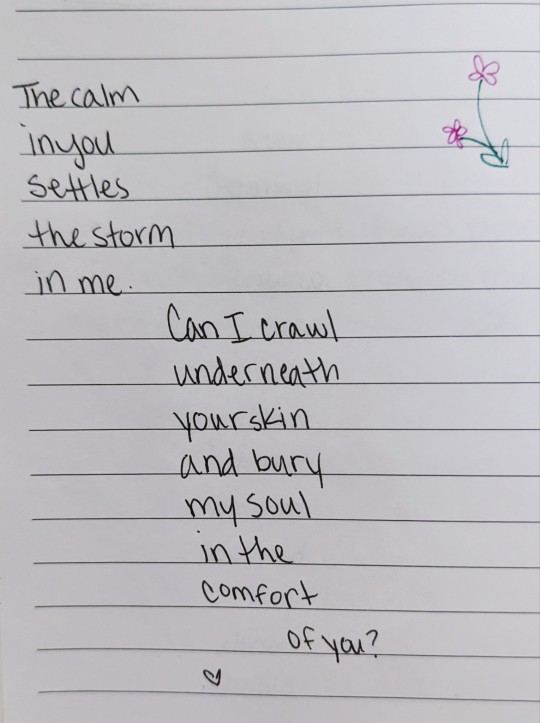 The calm
in you
settles
the storm
in me.
Can I crawl
underneath
your skin
and bury
my soul
in the
comfort
of you?